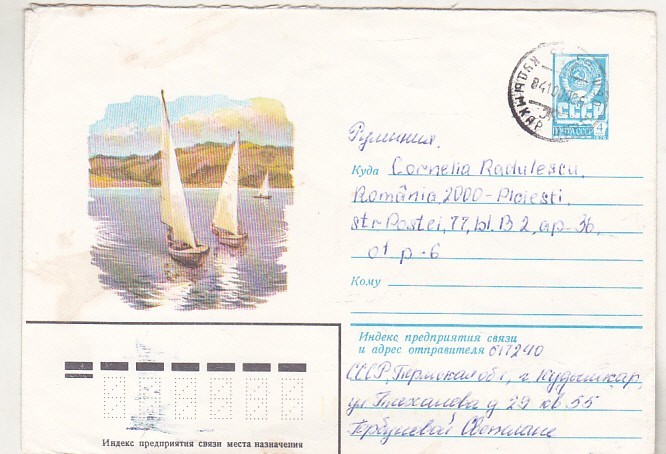 КУДЫМКАР
СССР
ПОЧТА СССР
4
Румыния.
Куда Cornelia Radulescu,
România 2000 - Ploiești,
str. Postei, 77, bl. B 2, ap - 36,
et p - 6
Кому
Индекс предприятия связи
и адрес отправителя 617240
СССР, Пермская обл, г. Кудымкар,
ул Плеханова д 29 кв 55
Светлане
Индекс предприятия связи места назначения